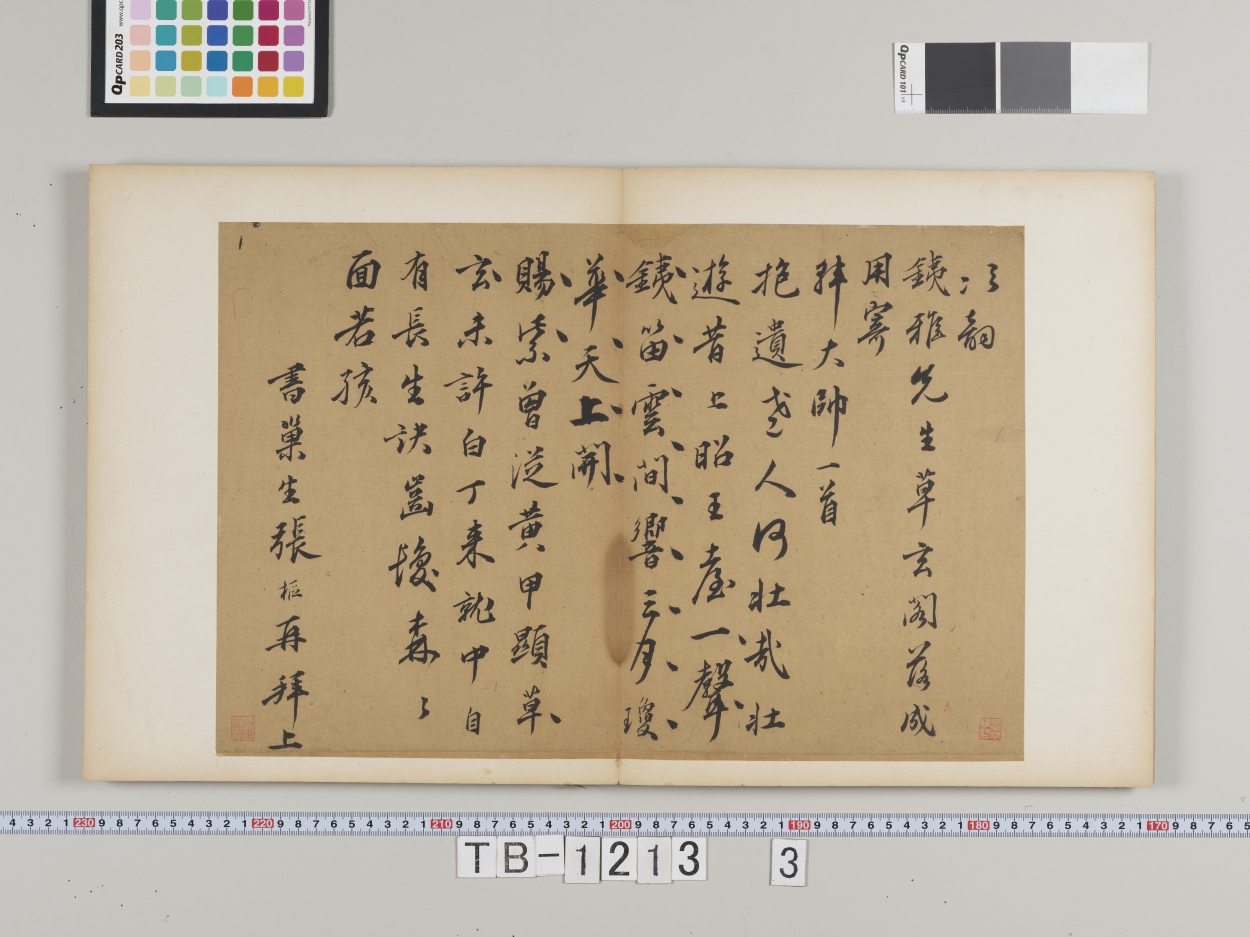 次韻
銕雅先生草玄閣落成
用寄
拜大帥一首
抱遺老人何壯哉壯
遊昔上昭王臺一聲
銕笛雲間響三月瓊
華天上開
賜紫曾從黃甲顯草
玄未許白丁來就中自
有長生訣豈
森々
面若孩
書巢生張樞再拜上
QPCARD 203
QPCARD 101
4 3 2 1 230 9 8 7 6 5 4 3 2 1 220 9 8 7 6 5 4 3 2 1 210 9 8 7 6 5 4 3 2 1 200 9 8 7 6 5 4 3 2 1 190 9 8 7 6 5 4 3 2 1 180 9 8 7 6 5 4 3 2 1 170 9 8 7 6 5
TB-1213 3